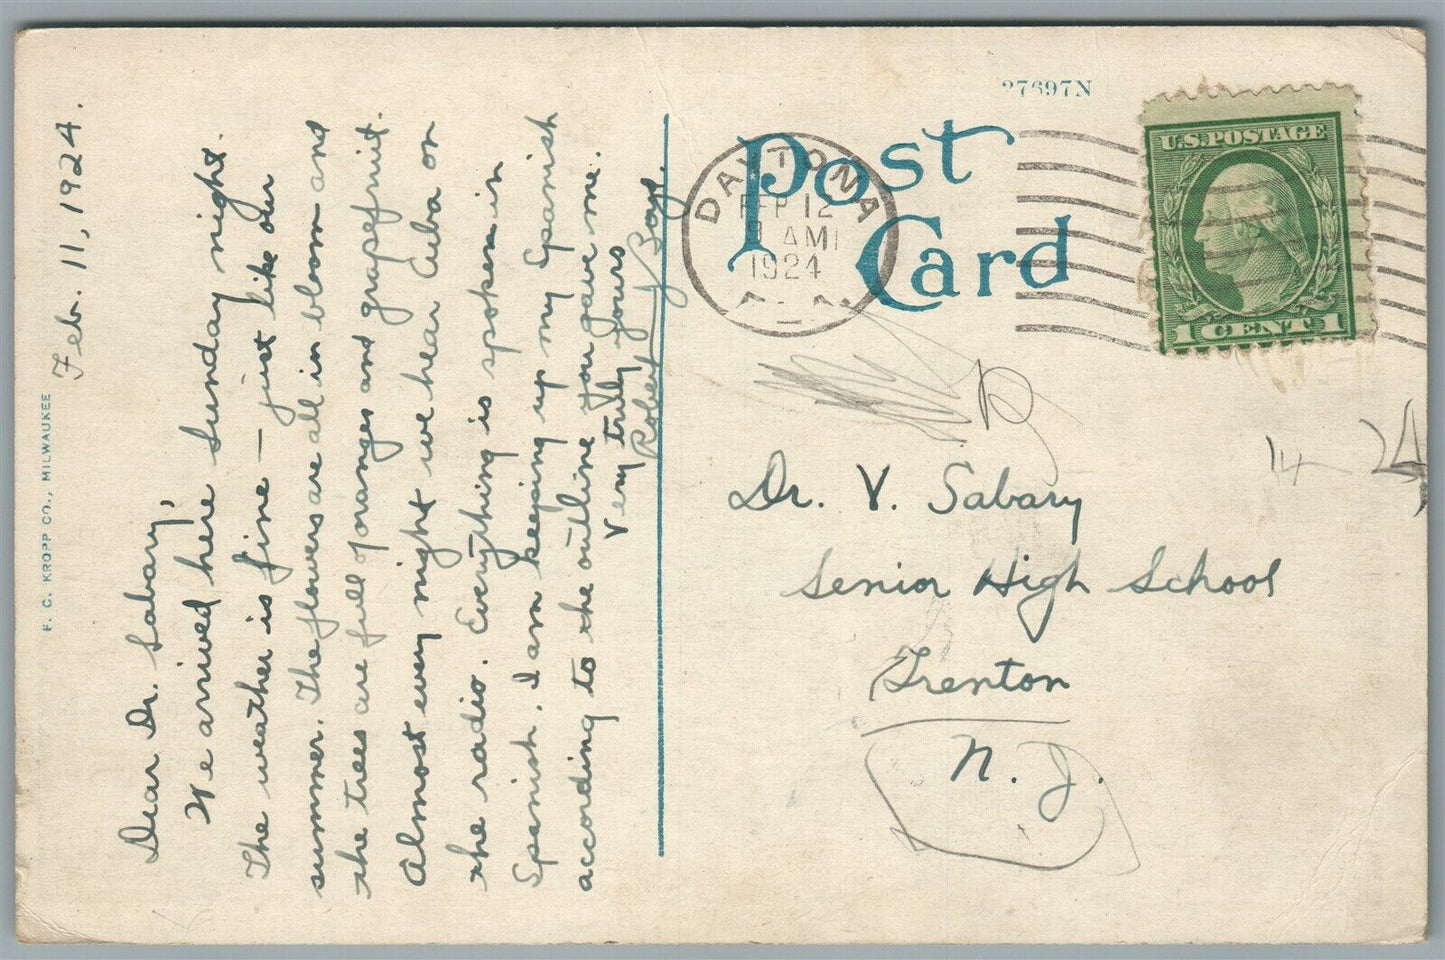 Feb. 11, 1924.
Dear Dr. Sabary,
We arrived here Sunday night.
The weather is fine — just like our
summer. The flowers are all in bloom and
the trees are full of oranges and grapefruit.
Almost every night we hear Cuba on
the radio. Everything is spoken in
Spanish. I am keeping up my Spanish
according to the outline you gave me.
Very truly yours
Robert
F. C. KROPP CO., MILWAUKEE
27697N
Post
Card
DAYTONA
FEB 12
AM
1924
FLA.
U.S. POSTAGE
1 CENT 1
Dr. V. Sabary
Senior High School
Trenton
N. J.